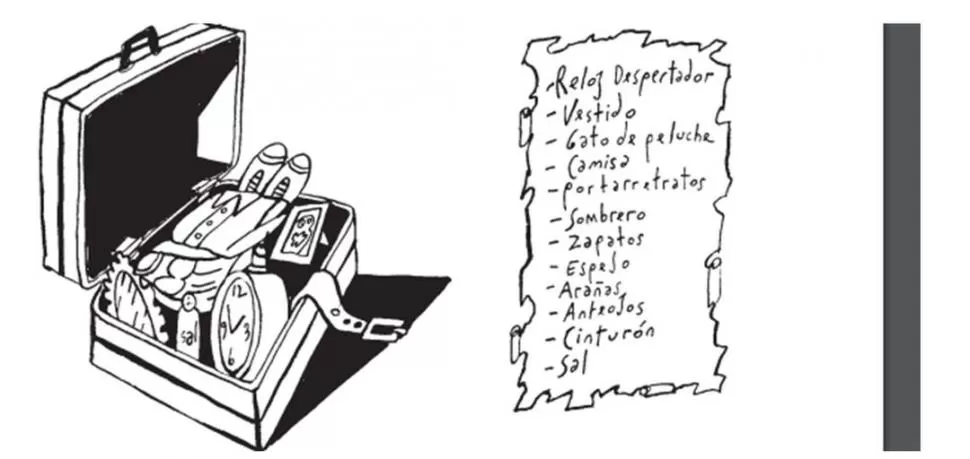 sal
12
9 3
6
-Reloj Despertador
- Vestido
- Gato de peluche
- Camisa
-portarretratos
-Sombrero
- Zapatos
- Espejo
-Arañas
- Anteojos
- Cinturón
-Sal